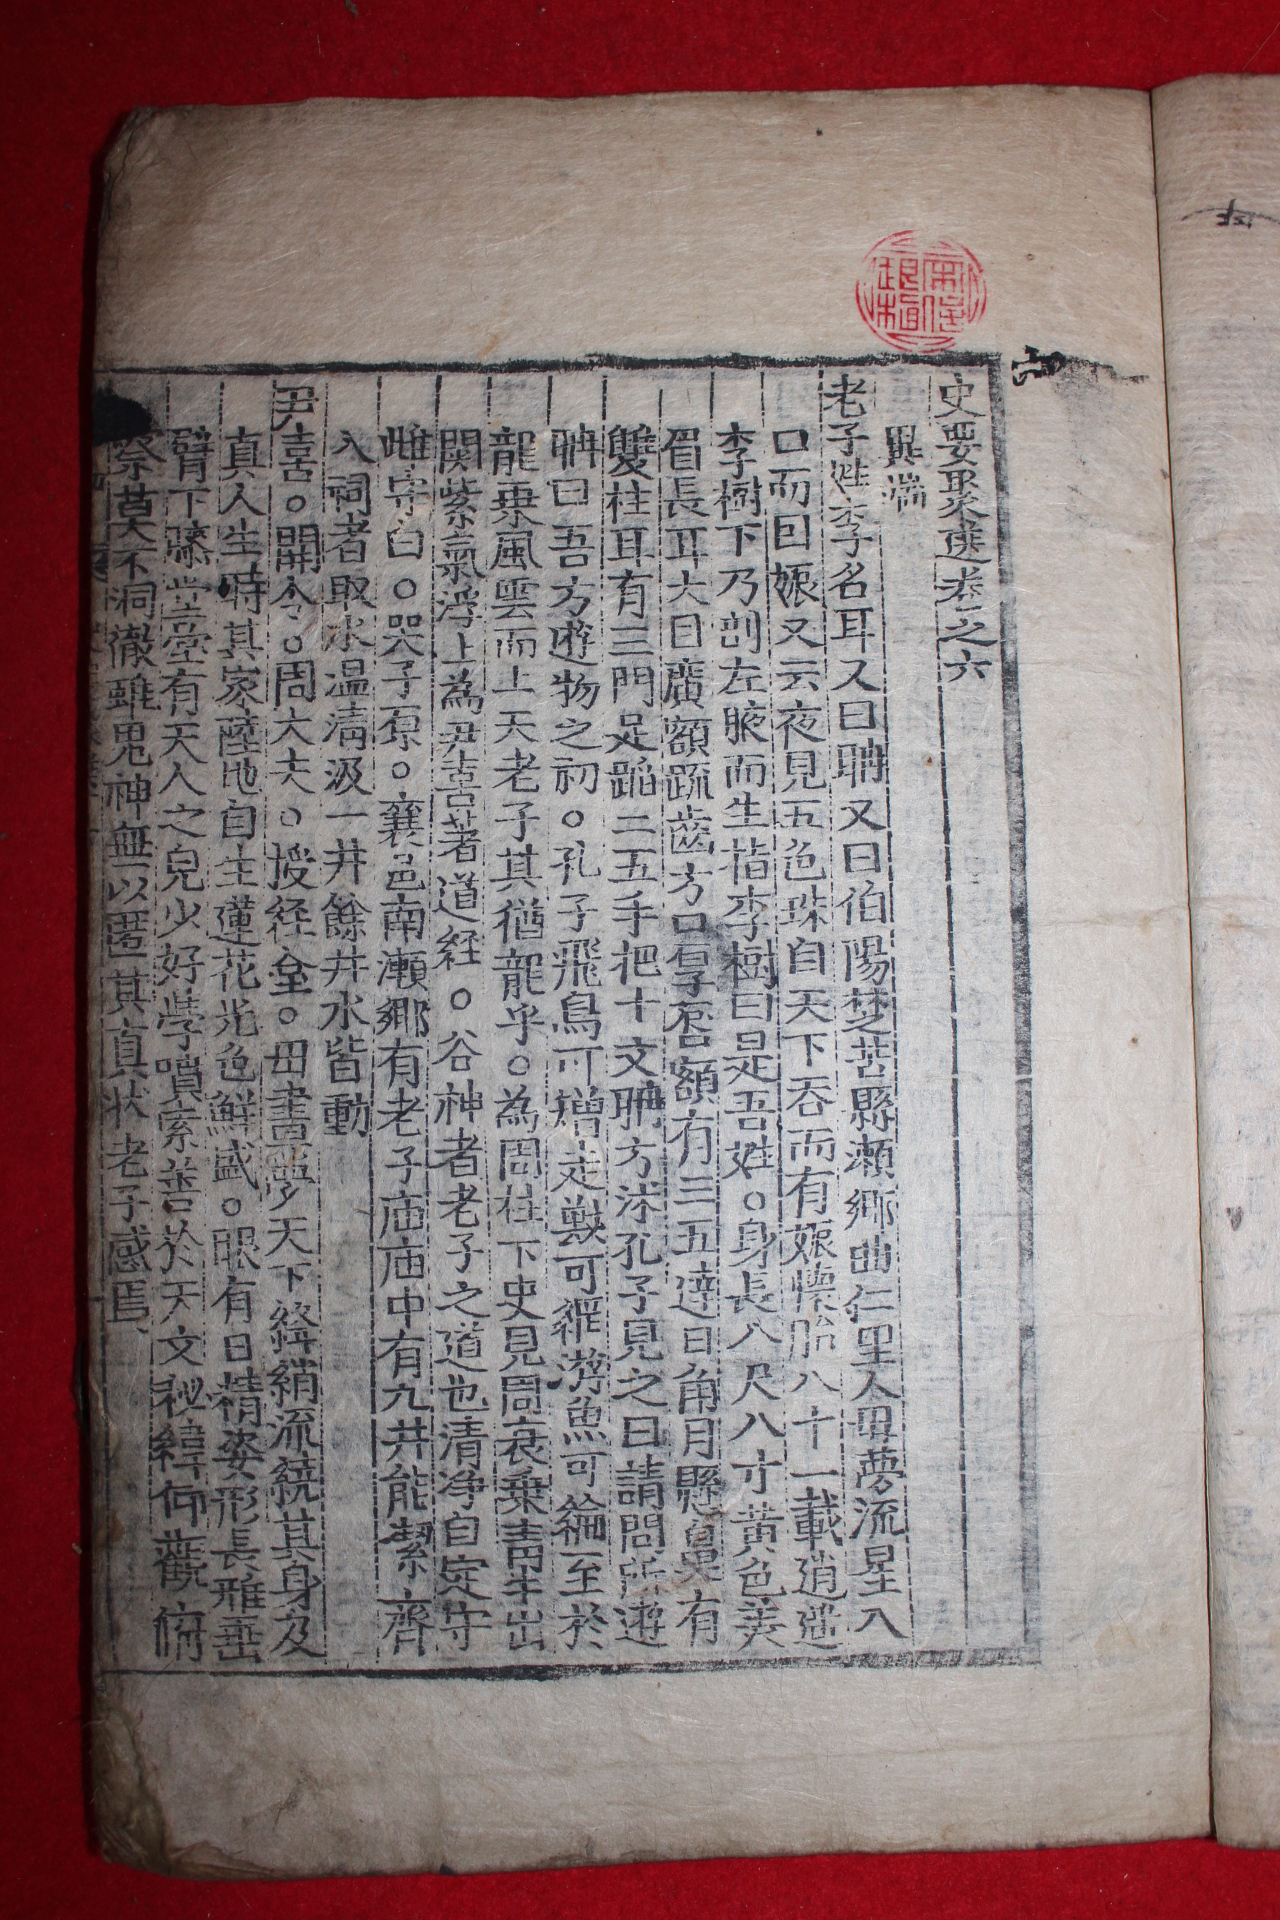 史要聚選卷之六
異端
老子姓李名耳又曰聃又曰伯陽楚苦縣瀨鄉曲仁里人母夢流星入
口而回娠又云夜見五色珠自天下吞而有娠懷胎八十一載逍遙
李樹下乃剖左腋而生指李樹曰是吾姓○身長八尺八寸黃色美
眉長耳大目廣額疏齒方口厚唇額有三五達日角月懸鼻有
雙柱耳有三門足蹈二五手把十文聃方沐孔子見之曰請問所遊
聃曰吾方遊物之初○孔子飛鳥可矰走獸可網游魚可綸至於
龍乘風雲而上天老子其猶龍乎○為周柱下史見周衰乘青牛出
関紫氣浮上為尹喜著道経○谷神者老子之道也清净自定守
雌守白○哭子原○襄邑南瀨鄉有老子庙庙中有九井能㓗齋
入祠者取水温清汲一井餘井水皆動
尹喜○開令○周大夫○授经堂○母晝夢天下絳綃流繞其身及
真人生時其家陸地自生蓮花光色鮮盛○眼有日精姿形長雅垂
臂下膝堂堂有天人之皃少好學墳索善於天文秘緯仰觀俯
察莫不洞徹雖鬼神無以匿其真状老子感焉